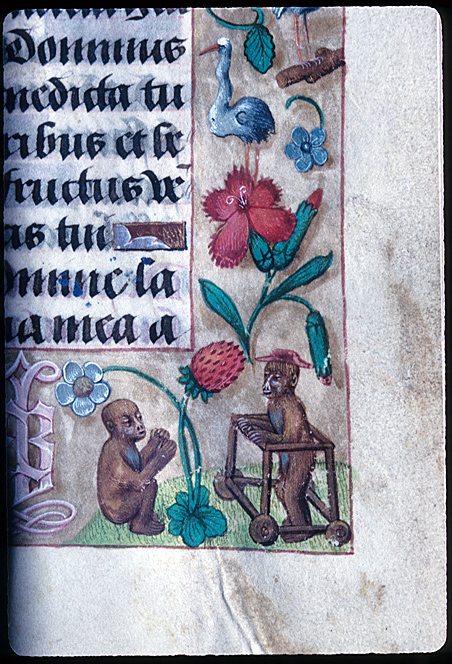 Dominus
nedicta tu
ribus et be
fructus ve
tui
Domine la
mea a